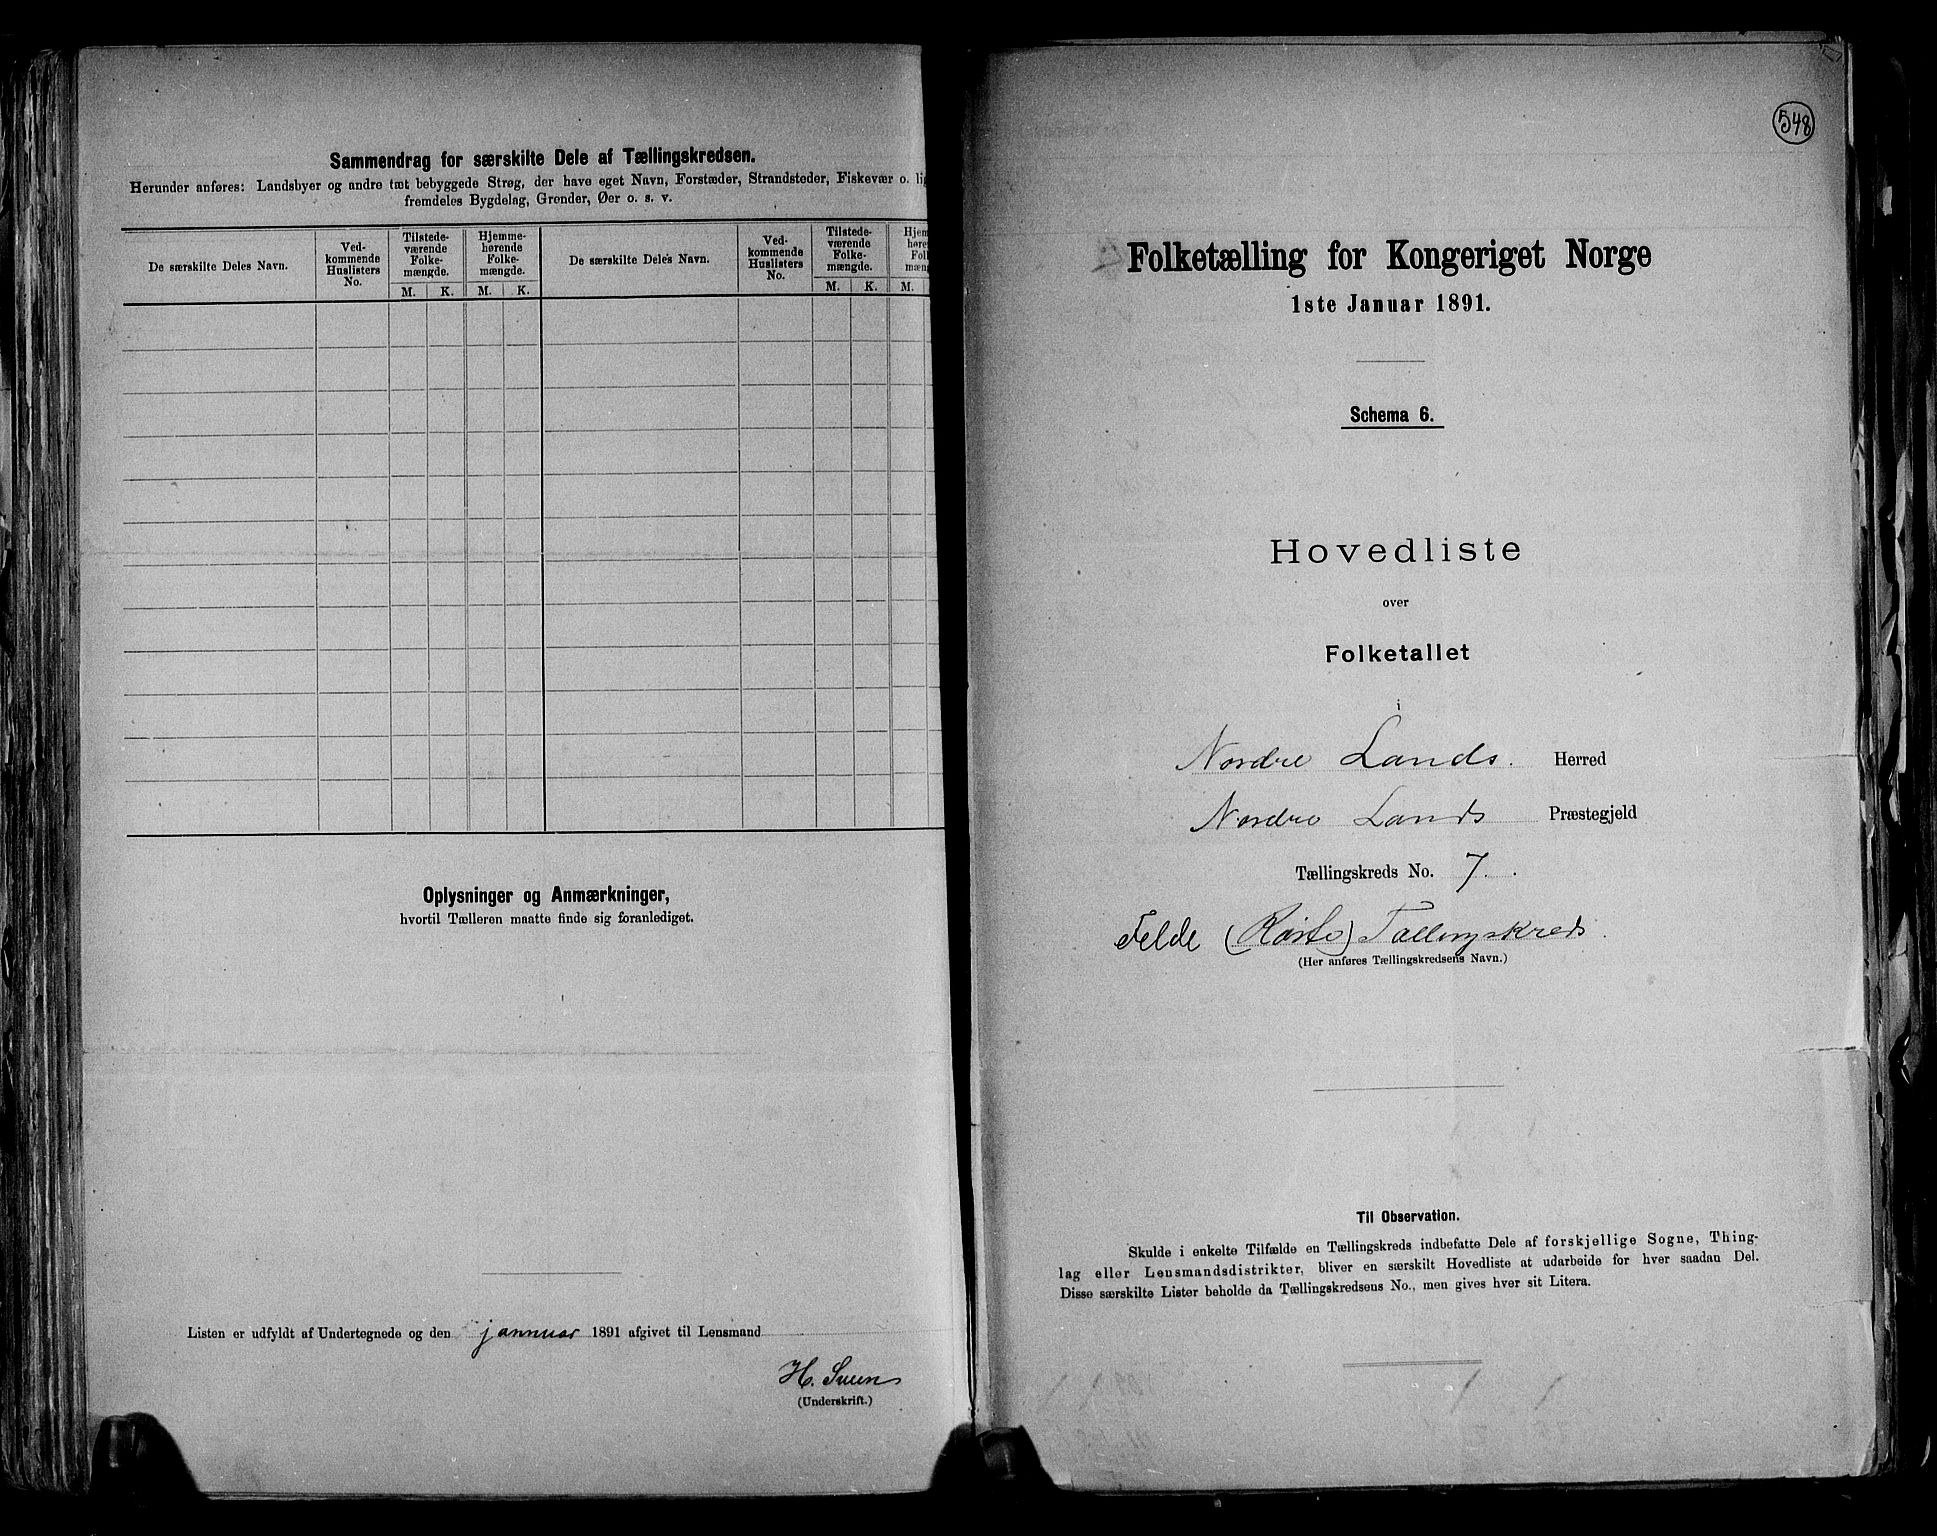 Sammendrag for særskilte Dele af Tællingskredsen.
Herunder anføres: Landsbyer og andre tæt bebyggede Strøg, der have eget Navn, Forstæder, Strandsteder, Fiskevær o. lig
fremdeles Bygdelag, Grender, Øer o. s. v.
De særskilte Deles Navn.
Ved-
kommende
Huslisters
No.
Tilstede-
værende
Folke-
mængde.
M. K.
Hjemme-
hørende
Folke-
mængde.
M. K.
De særskilte Deles Navn.
Ved-
kommende
Huslisters
No.
Tilstede-
værende
Folke-
mængde.
M. K.
Hjem
høre
Fol
mæng
M.
Oplysninger og Anmærkninger,
hvortil Tælleren maatte finde sig foranlediget.
Listen er udfyldt af Undertegnede og den januar 1891 afgivet til Lensmand
H. Sveen
(Underskrift.)
548
Folketælling for Kongeriget Norge
1ste Januar 1891.
Schema 6.
Hovedliste
over
Folketallet
i
Nordre Lands. Herred
Nordre Lands Præstegjeld
Tællingskreds No. 7.
Felde (Røste) Tællingskreds.
(Her anføres Tællingskredsens Navn.)
Til Observation.
Skulde i enkelte Tilfælde en Tællingskreds indbefatte Dele af forskjellige Sogne, Thing-
lag eller Lensmandsdistrikter, bliver en særskilt Hovedliste at udarbeide for hver saadan Del.
Disse særskilte Lister beholde da Tællingskredsens No., men gives hver sit Litera.